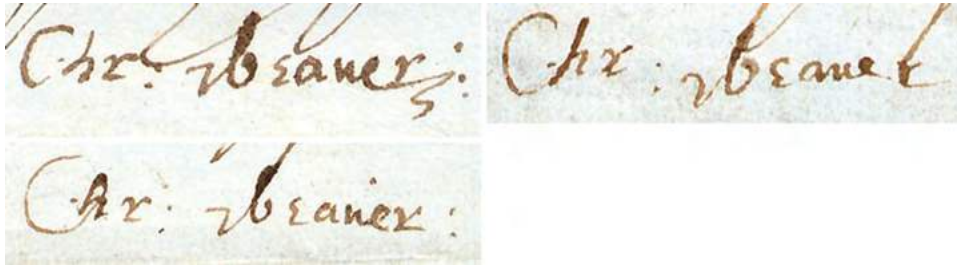 Chr: Beauer:
Chr: Beauer
Chr: Beauer: